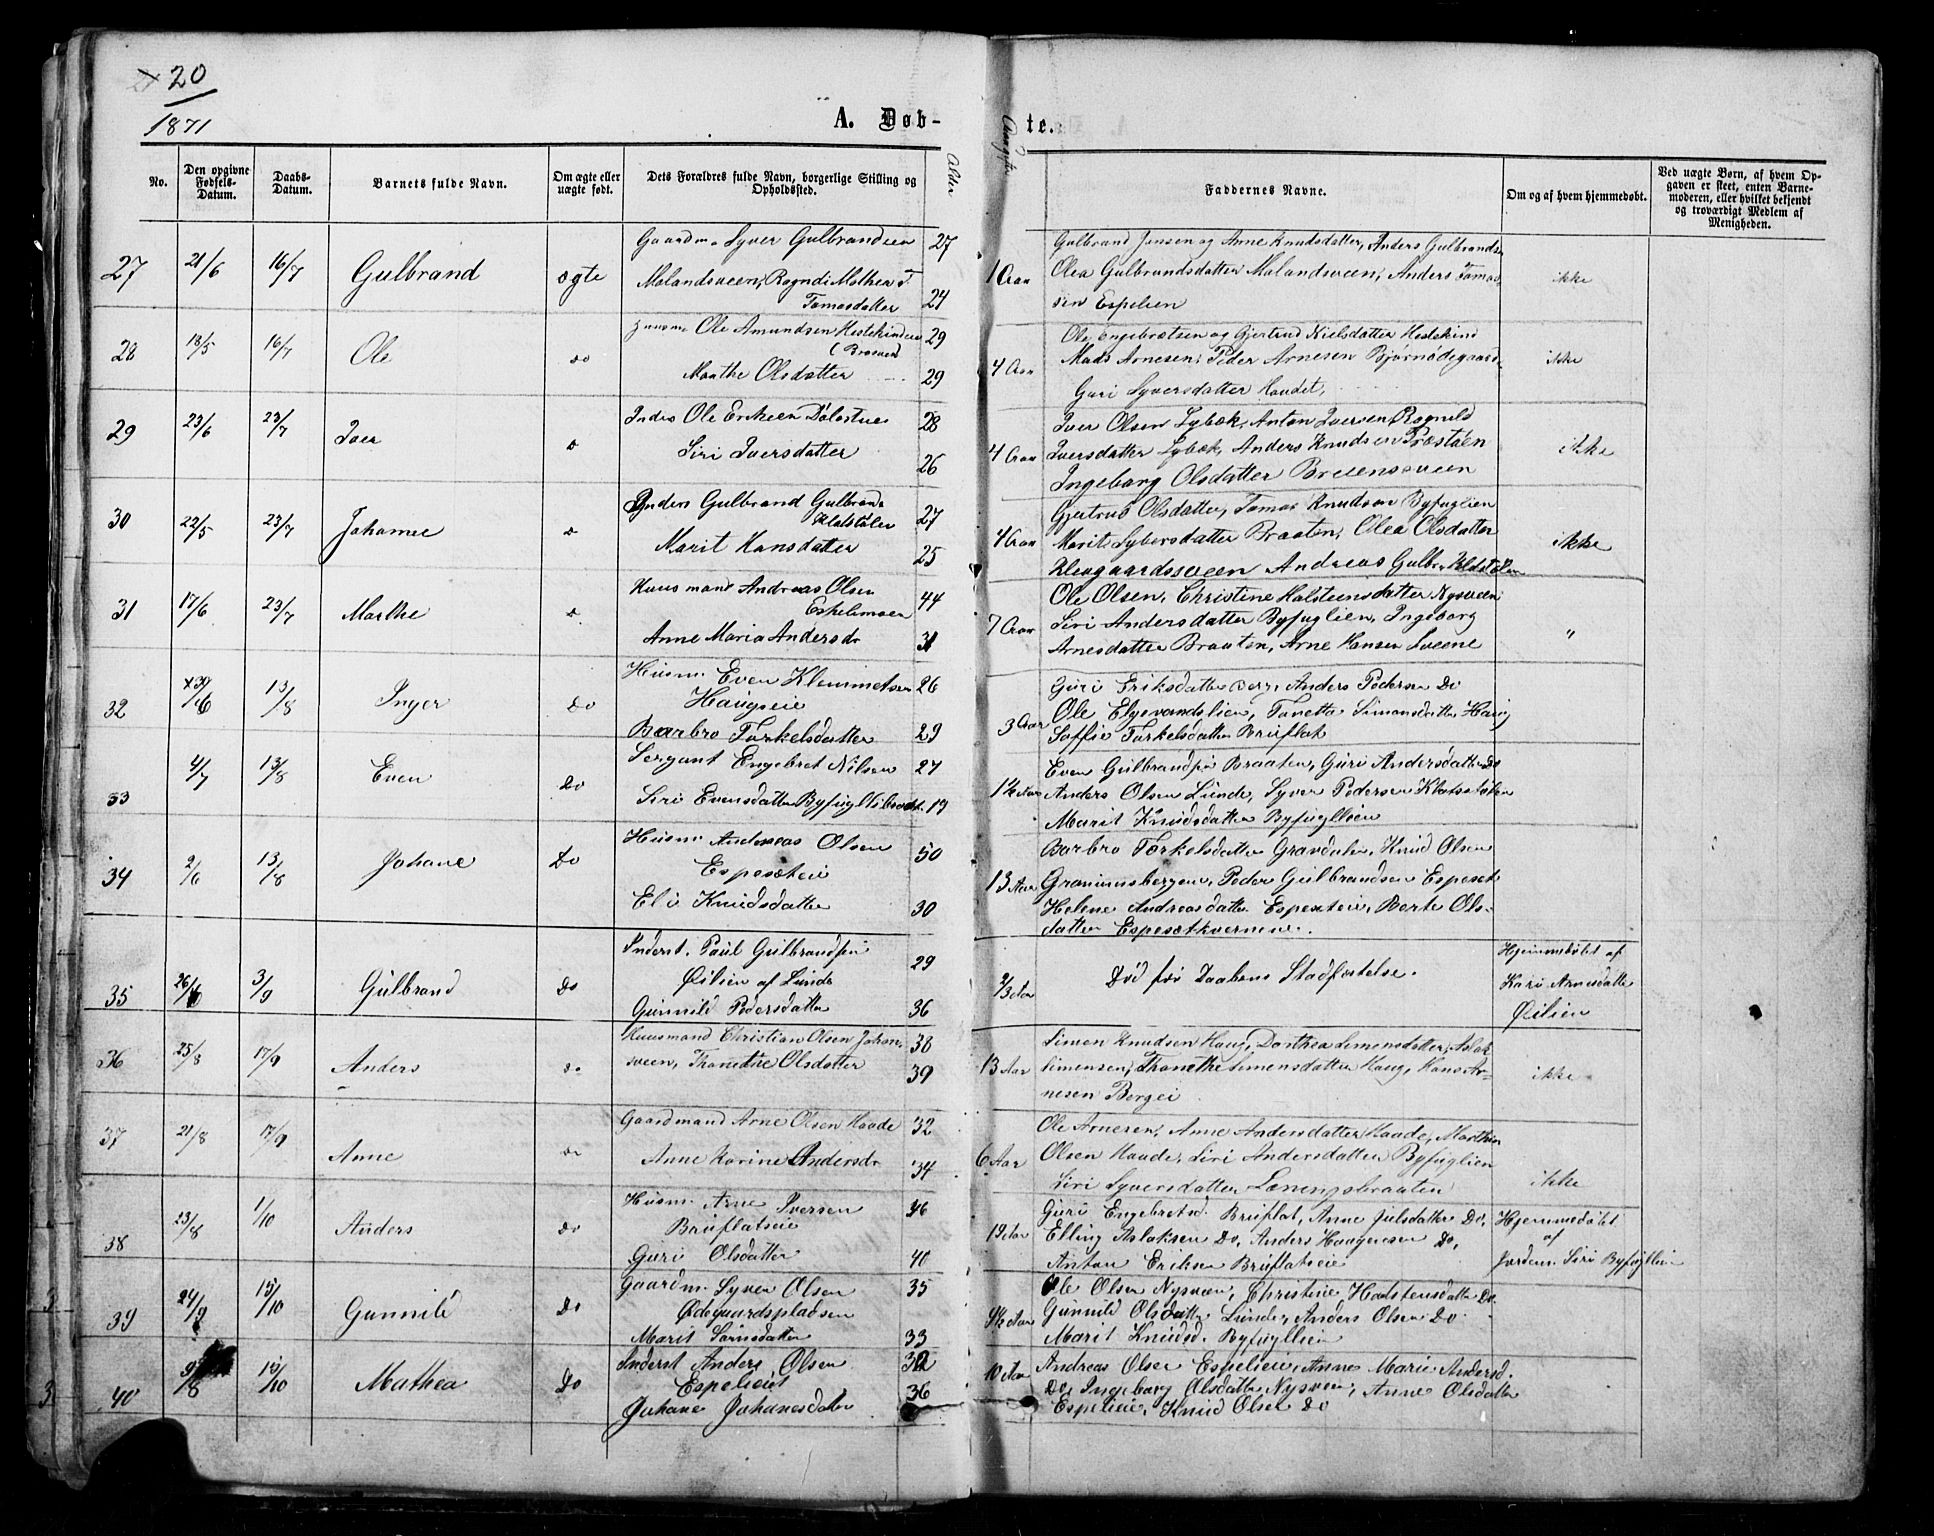 20
1871
A. Døb-
te.
No.
Den opgivne Fødsels-Datum.
Daabs-Datum.
Barnets fulde Navn.
Om ægte eller uægte født.
Dets Forældres fulde Navn, borgerlige Stilling og Opholdssted.
Alder
Faddernes Navne.
Om og af hvem hjemmedøbt.
Ved uægte Børn, af hvem Opgaven er skeet, enten Barnemoderen, eller hvilket bekjendt og troværdigt Medlem af Menigheden.
27 21/6 16/7 Gulbrand ægte
Gaardm Syver Gulbrandsen 27
Molandsveen, Ragndi Mathea
Tomasdatter 24
1 Aar
Gulbrand Jensen og Anne Knudsdatter, Anders Gulbrands
Olea Gulbrandsdatter Molandsveen, Anders Tomas
sen Espelien
ikke
28 18/5 16/7 Ole do
Ole Amundsen Hestekind 29
Marthe Olsdatter 29
4 Aar
Ole Engebretsen og Gjertrud Nielsdatter Hestekind
Mads Arnesen, Peder Arnesen Bjørnødegaard
Guri Syversdatter Haudet,
ikke
29 23/6 23/7 Iver
Inders Ole Eriksen 28
Siri Iversdatter 26
4 Aar
Iver Olsen Lybæk, Anton Iversen Ragnild
Iversdatter Lybæk, Anders Knudsen Præstøen
Ingeborg Olsdatter Breiensveen
ikke
30 22/5 23/7 Johanne
Inders Gulbrand Gulbrands
Klatstølen 27
Marit Hansdatter 25
4 Aar
Gjertrud Olsdatter, Tomas Knudsen Byfuglien
Marit Syversdatter Braaten, Olea Olsdatter
Andreas Gulbr. Klatstølen
ikke
31 17/6 23/7 Marthe
Huusmand Andreas Olsen 44
Anne Maria Andersdr 31
7 Aar
Ole Olsen, Christine Halsteensdatter Nysveen
Siri Andersdatter Byfuglien, Ingeborg
Arnesdatter Braaten, Arne Hansen Sveene
"
32 30/6 13/8 Inger Do
Husm. Even Klemmetsen 26
Haugseie
Barbro Torkelsdatter 29
3 Aar
Guri Eriksdatter Berg, Anders Pedersen Do
Ole Elgevandslien, Tonetta Simonsdatter Haug
Soffie Torkelsdatter Bruflat
33 4/7 13/8 Even Do
Sergant Engebret Nilsen 27
Siri Evensdatter 19
1½ Aar
Even Gulbrandsøn Braaten, Guri Andersdatter Do
Anders Olsen Lunde, Syver Pedersen Klatstølen
Marit Knudsdatter Byfugllien
34 2/6 13/8 Johane Do
Husm. Andreas Olsen 50
Espesæteie
Eli Knudsdatter 30
13 Aar
Barbro Torkelsdatter Gravdalen, Knud Olsen
Gramumsbergen, Peder Gulbrandsen Espeset
Helene Andreasdatter Espeseteie, Berte Ols-
datter Espesætkvernene.
35 3/9 Gulbrand Do
Inderst. Paul Gulbrandsøn 29
Øilien af Lunde
Gunnild Pedersdatter 36
Død før Daabens Stadfæstelse.
Hjemmedøbt af
Kari Arnesdatter
Øilien
36 25/8 17/9 Anders do
Huusmand Christian Olsen Johans- 38
sveen, Thonethe Olsdatter 39
13 Aar
Simen Knudsen Haug, Dorthea Simensdatter, Aslak
Simensen, Thonethe Simensdatter Haug, Hans Ar-
nesen Bergei
ikke
37 21/8 17/9 Anne do
Gaardmand Arne Olsen Haade 32
Anne Karine Andersdr 34
6 Aar
Ole Arnesen, Anne Andersdatter Haade, Marthin
Olsen Haade, Siri Andersdatter Byfuglien
Siri Syversdatter Lænengsbraaten
ikke
38 23/8 1/10 Anders Do
Husm. Arne Iversen 46
Bruflatseie
Guri Olsdatter 40
19 Aar
Guri Engebretsd. Bruflat, Anne Julsdatter Do,
Elling Aslaksen Do, Anders Haagensen Do,
Anton Eriksen Bruflatseie
Hjemmedøbt
af
Jordem. Siri Byfugllien
39 24/9 15/10 Gunnild Do
Gaardm. Syver Olsen 35
Ødegaardspladsen
Marit 33
9½ Aar
Ole Olsen Nysveen, Christine Halstensdatter Do.
Gunnild Olsdatter Lunde, Anders Olsen Do
Marit Knudsd. Byfugllien
40 15/10 Mathea Do
Inderst Anders Olsen 32
Espelieeie 36
Johane Johanesdatter
10 Aar
Andreas Olsen Espelieeie, Anne Marie Andersd.
Do, Ingeborg Olsdatter Nysveen, Anne Olsdatter
Espelieeie, Knud Olsen Do